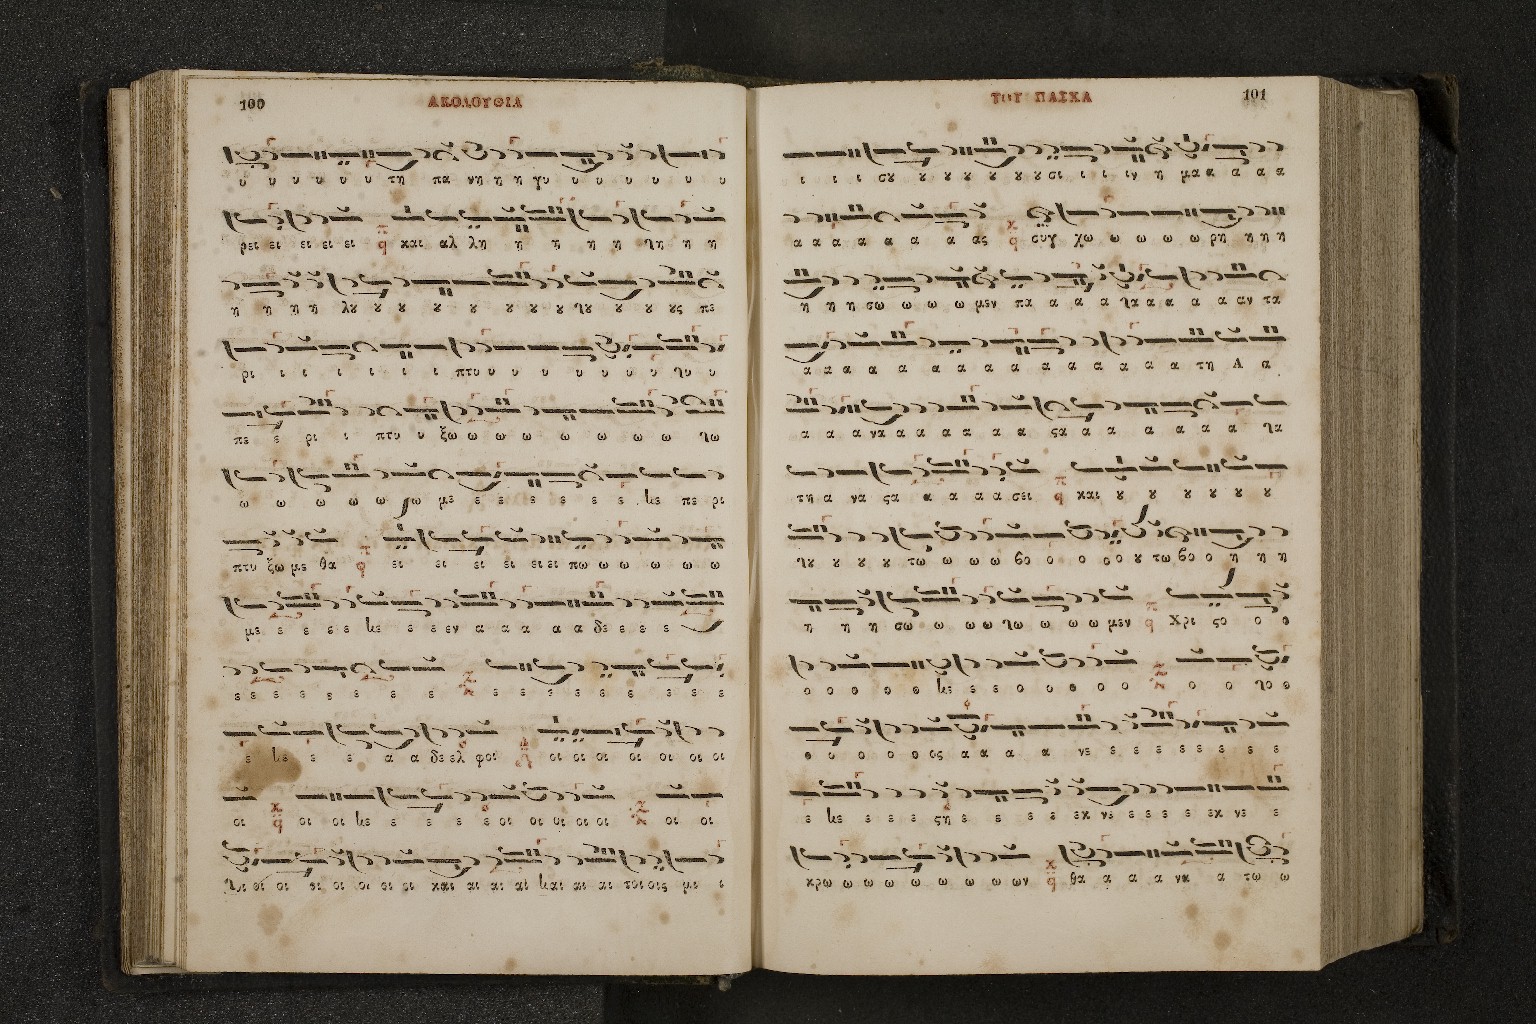 100
ΑΚΟΛΟΥΘΙΑ
υ υ υ υ υ υ τη πα νη η η γυ υ υ υ υ υ υ
ρει ει ει ει ει και αλ λη η η η η λη η η
η η η η λȣ ȣ ȣ ȣ ȣ ȣ ȣ ȣ λȣ ȣ ȣ ȣς πε
ρι ι ι ι ι ι ι πτυ υ υ υ υ υ υ υ λυ υ
πε ε ρι ι πτυ υ ξω ω ω ω ω ω ω ω λω
ω ω ω ω ω ω με ε ε ε ε ε ε ε με πε ρι
πτυ ξω με θα ει ει ει ει ει ει πω ω ω ω ω ω
με ε ε ε ε με ε ε εν α α α α α δε ε ε ε
ε ε ε ε ε ε ε ε ε ε ε ε ε ε ε ε ε
ε με ε ε α α δε ελ φοι οι οι οι οι οι οι οι
οι οι οι με ε ε ε ε οι οι οι οι οι οι οι
και αι αι αι και αι αι τοι οις μι ι
ΤΟΥ ΠΑΣΧΑ
101
ι ι ι σȣ ȣ ȣ ȣ ȣ ȣ ȣ σι ι ι ιν η μα α α α α
α α α α α α α α ας συγ χω ω ω ω ω ρη η η η
η η η σω ω ω ω μεν πα α α α λα α α α α αν τα
α α α α α α α α α α α α α α α α τη Α α
α α α να α α α α α α ςα α α α α α α λα
τη α να ςα α α α α σει και ȣ ȣ ȣ ȣ ȣ ȣ
λȣ ȣ ȣ ȣ τω ω ω ω βο ο ο ο ο ο ȣ τω βο ο η η η
η η η σω ω ω ω λω ω ω ω μεν Χρι ςο ο ο
ο ο ο ο ο με ε ε ο ο ο ο ο ο ο ο λο ο
ο ο ο ο ο ος α α α α νε ε ε ε ε ε ε ε ε
ε με ε ε ε ε ςη ε ε ε ε εκ νε ε ε ε εκ νε ε
κρω ω ω ω ω ω ω ω ω ων θα α α α να α τω ω